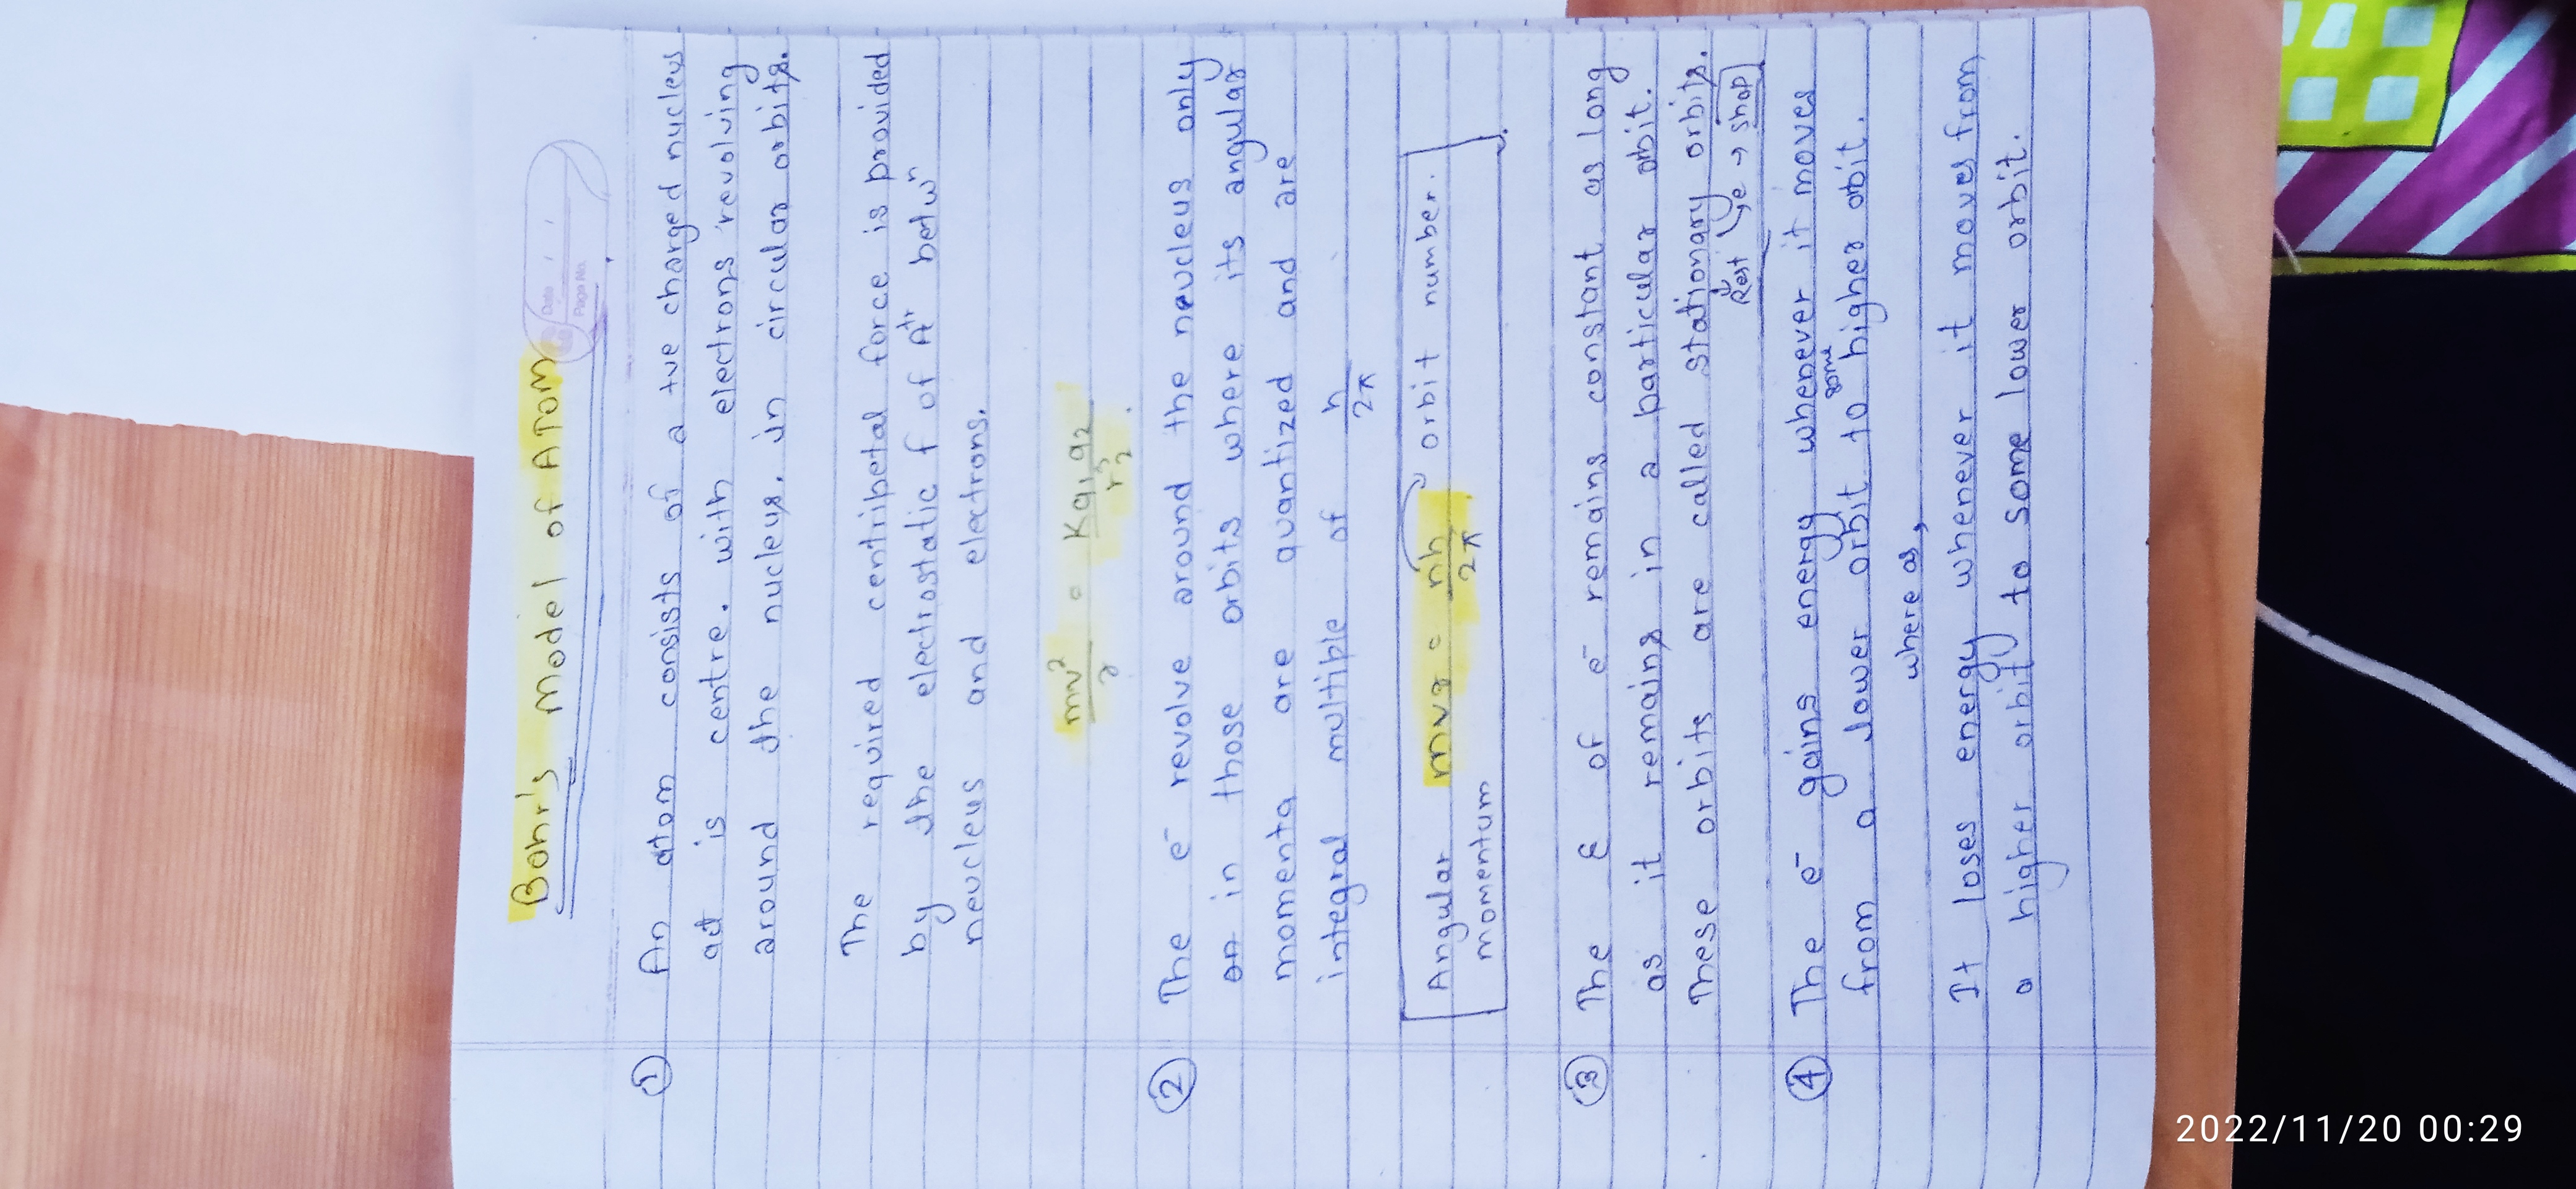 Date / /
Page No.
Bohr's model of ATOM
① An atom consists of a +ve charged nucleus
at is centre. with electrons revolving
around the nucleus. in circular orbits.
The required centripetal force is provided
by the electrostatic f of Aⁿ betwⁿ
neucleus and electrons.
mv²/r = Kq₁q₂/r²
② The e⁻ revolve around the neucleus only
on in those orbits where its angular
momenta are quantized and are
integral multible of h/2π
Angular momentum mvr = nh/2π orbit number.
③ The E of e⁻ remains constant as long
as it remains in a particular orbit.
These orbits are called stationary orbits.
Rest ye → shop
④ The e⁻ gains energy whenever it moves
from a lower orbit to some higher orbit.
where as,
It loses energy whenever it moves from
a higher orbit to some lower orbit.
2022/11/20 00:29